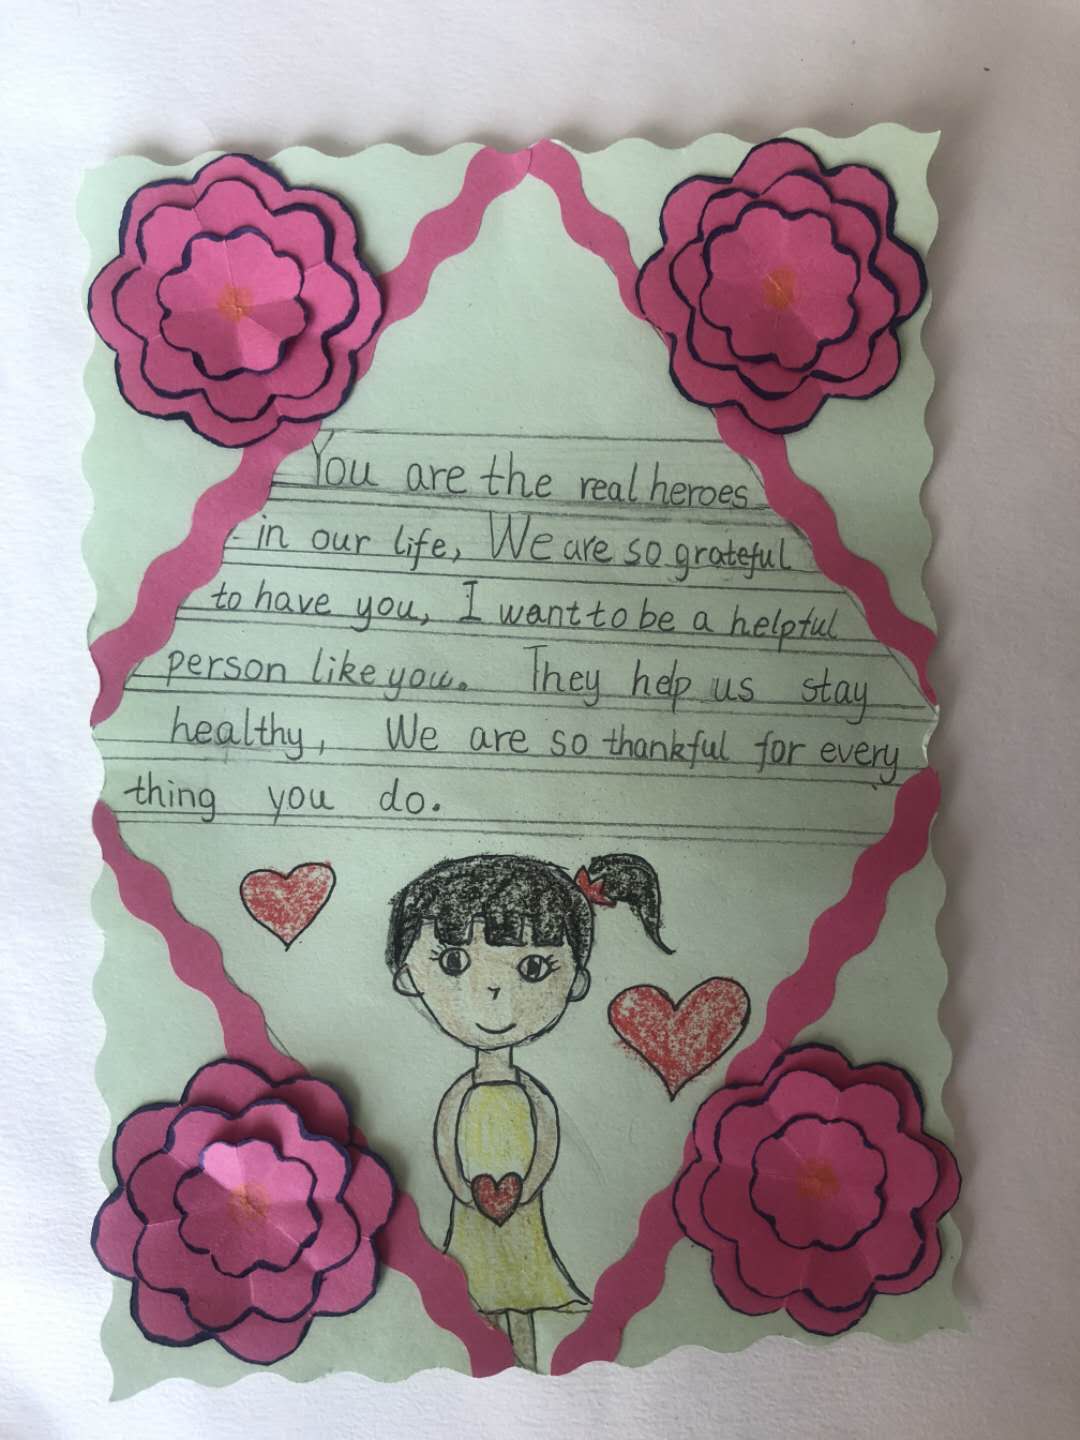 You are the real heroes
in our life, We are so grateful
to have you, I want to be a helpful
person like you. They help us stay
healthy, We are so thankful for every
thing you do.